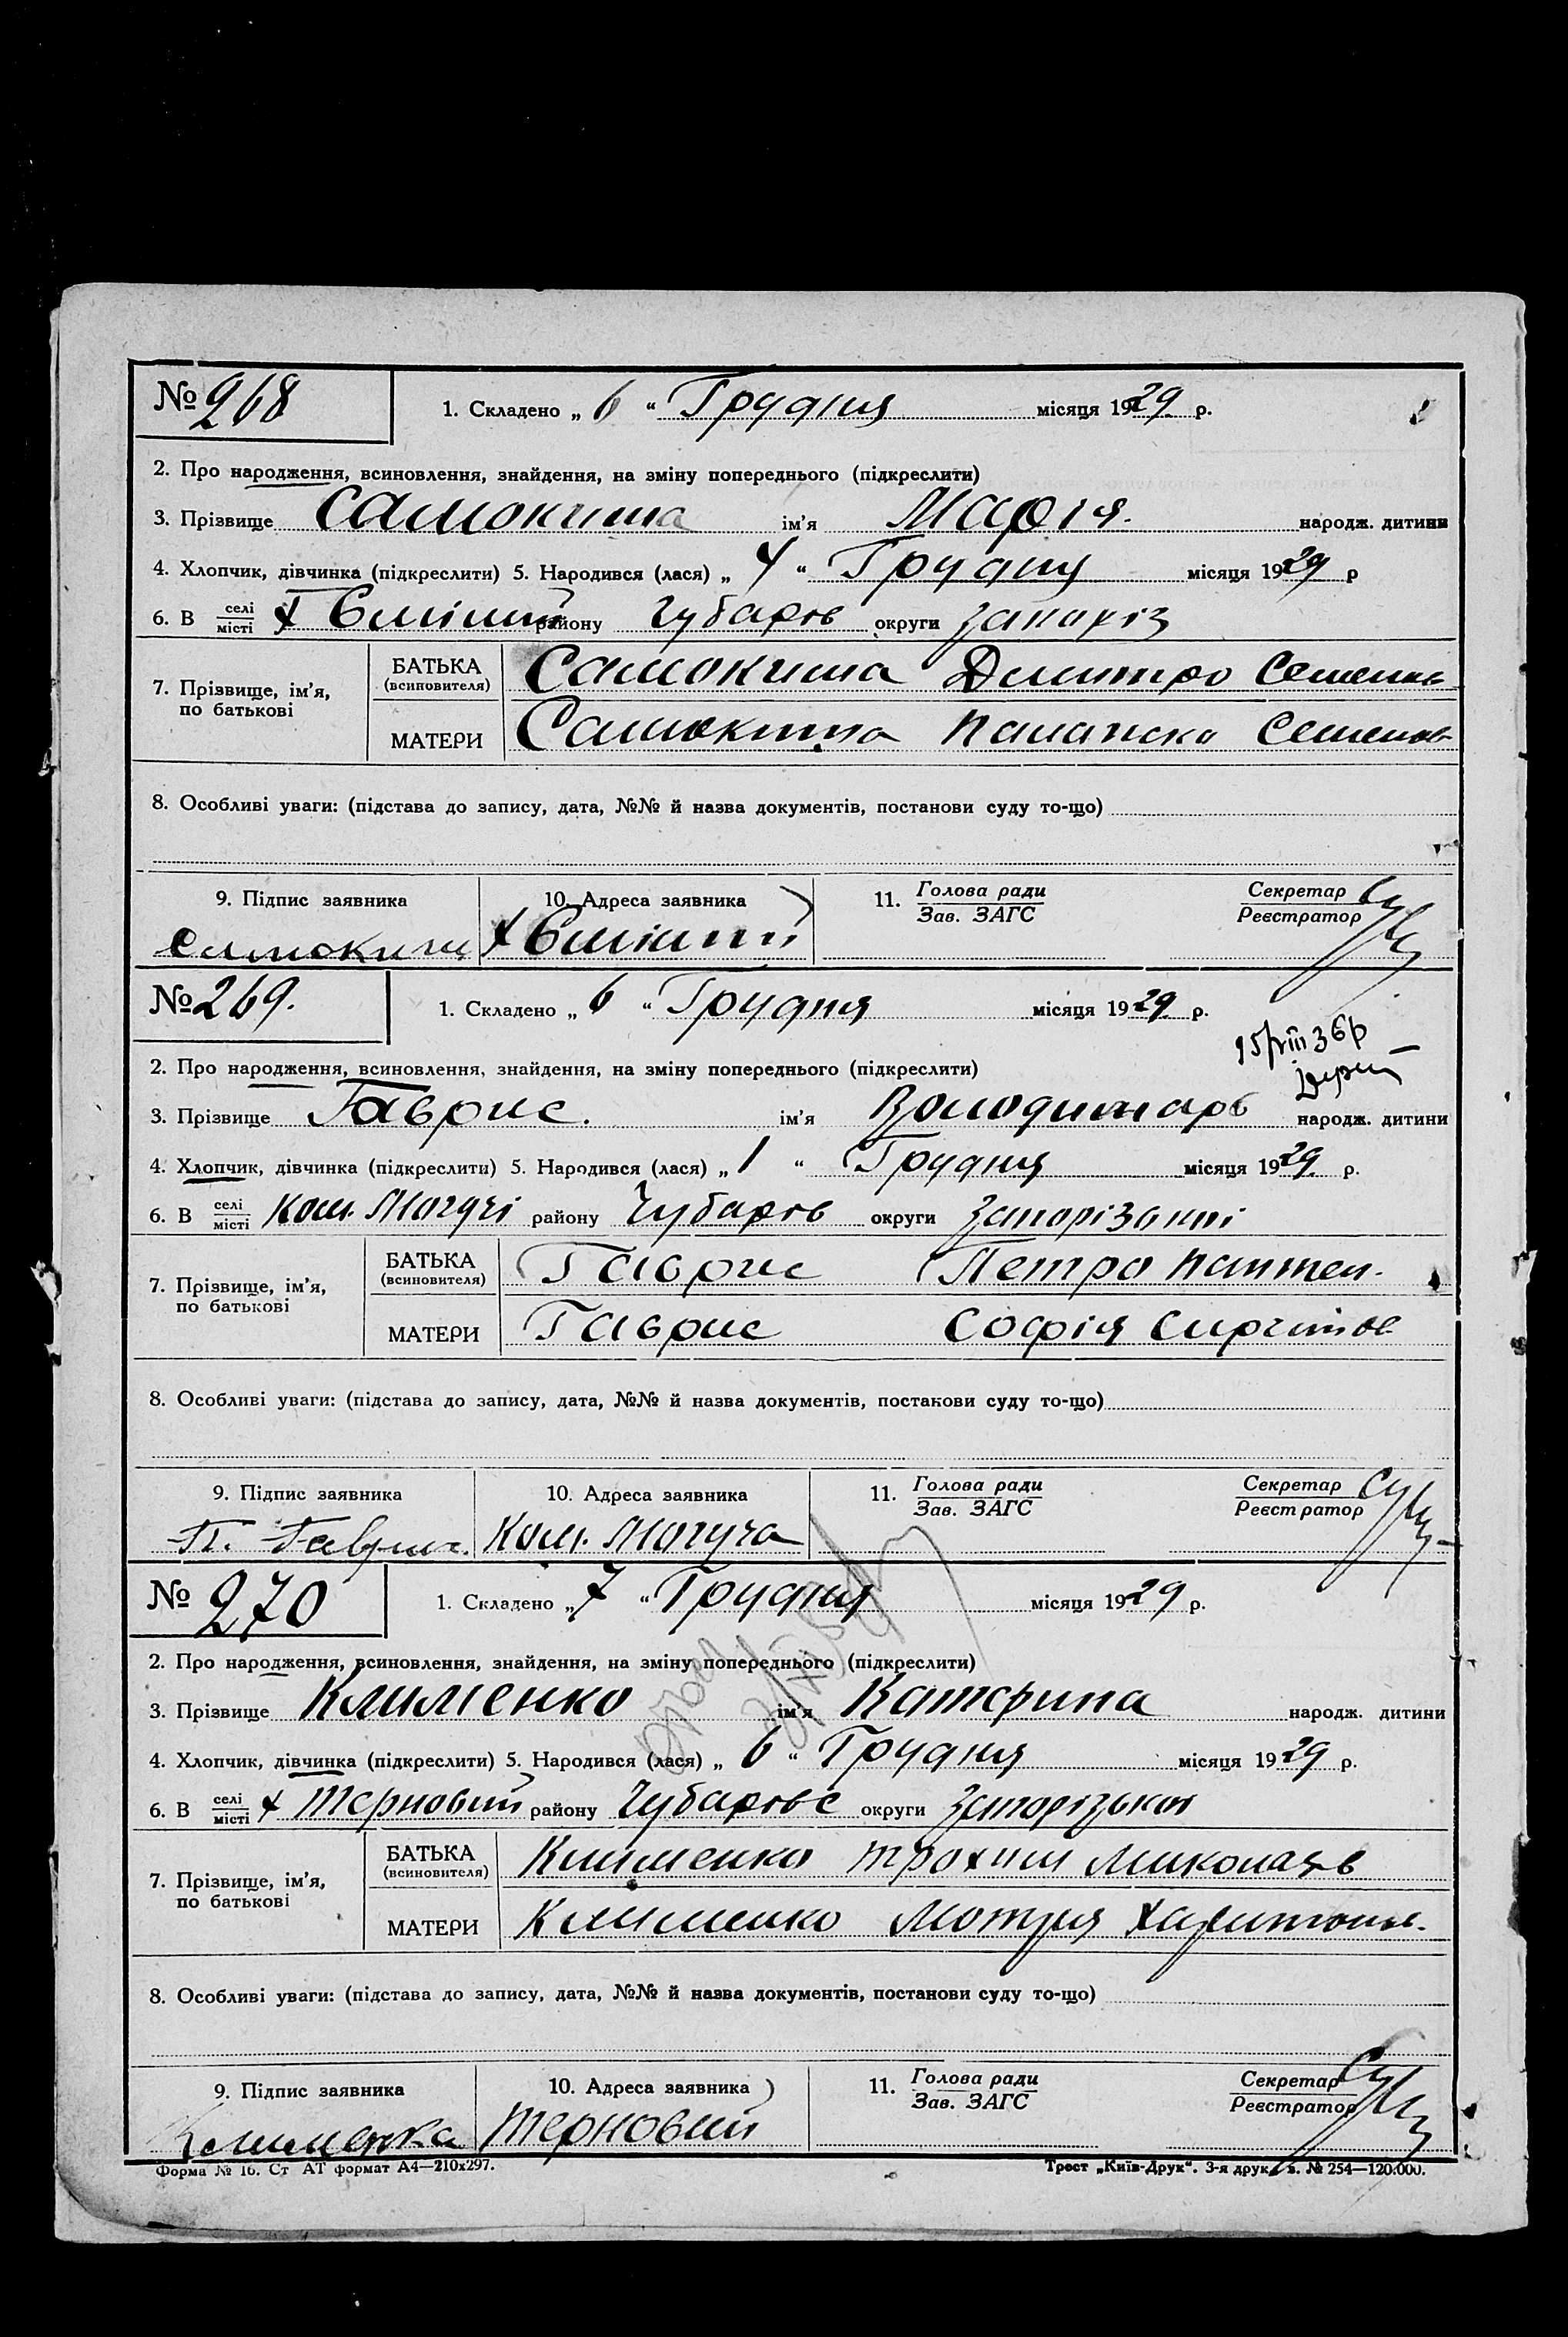 № 268
1. Складено „ 6 “ Грудня місяця 1929 р.
2. Про народження, всиновлення, знайдення, на зміну попереднього (підкреслити)
3. Прізвище Самокиша ім'я Марія. народж. дитини
4. Хлопчик, дівчинка (підкреслити) 5. Народився (лася) „ 4 “ Грудня місяця 1929 р
6. В селі місті х району Чубарів округи Запоріз
7. Прізвище, ім'я, по батькові
БАТЬКА (всиновителя) Самокиша Дмитро Семенов
МАТЕРИ Самокиша Палажка Семенов
8. Особливі уваги: (підстава до запису, дата, №№ й назва документів, постанови суду то-що)
9. Підпис заявника 10. Адреса заявника 11. Голова ради Зав. ЗАГС Секретар Реєстратор
Самокиша х
№ 269.
1. Складено „ 6 “ Грудня місяця 1929 р.
2. Про народження, всиновлення, знайдення, на зміну попереднього (підкреслити)
3. Прізвище Гаврис. ім'я Володимарь народж. дитини
4. Хлопчик, дівчинка (підкреслити) 5. Народився (лася) „ 1 “ Грудня місяця 1929 р.
6. В селі місті Ком. Могучі району Чубарів округи Запорізької
7. Прізвище, ім'я, по батькові
БАТЬКА (всиновителя) Гаврис Петро Пантел.
МАТЕРИ Гаврис Софія
8. Особливі уваги: (підстава до запису, дата, №№ й назва документів, постанови суду то-що)
9. Підпис заявника 10. Адреса заявника 11. Голова ради Зав. ЗАГС Секретар Реєстратор
П. Гаврис. Ком. Могуча
№ 270
1. Складено „ 7 “ Грудня місяця 1929 р.
2. Про народження, всиновлення, знайдення, на зміну попереднього (підкреслити)
3. Прізвище Клименко ім'я Катерина народж. дитини
4. Хлопчик, дівчинка (підкреслити) 5. Народився (лася) „ 6 “ Грудня місяця 1929 р.
6. В селі місті х Терновий району Чубарівс округи Запорізькоі
7. Прізвище, ім'я, по батькові
БАТЬКА (всиновителя) Клименко Трохим Миколаєв
МАТЕРИ Клименко Мотря Харитонов.
8. Особливі уваги: (підстава до запису, дата, №№ й назва документів, постанови суду то-що)
9. Підпис заявника 10. Адреса заявника 11. Голова ради Зав. ЗАГС Секретар Реєстратор
Клименка Терновий
Форма № 16. Ст АТ формат А4—210х297.
Трест „Київ-Друк“. 3-я друк. з. № 254—120.000.